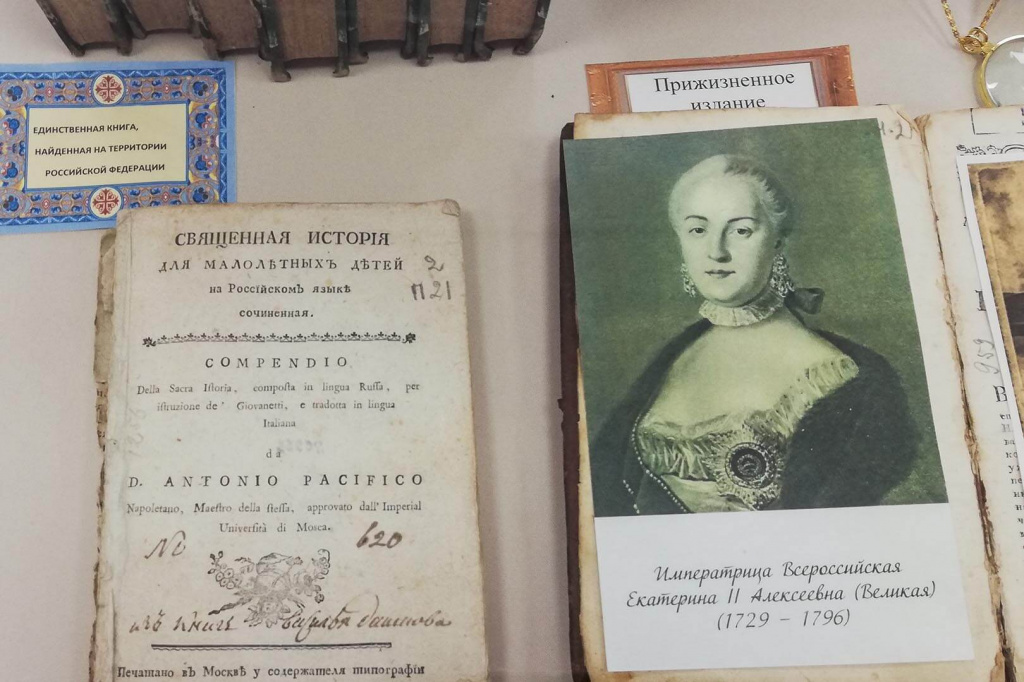 ЕДИНСТВЕННАЯ КНИГА,
НАЙДЕННАЯ НА ТЕРРИТОРИИ
РОССИЙСКОЙ ФЕДЕРАЦИИ
СВЯЩЕННАЯ ИСТОРІЯ
ДЛЯ МАЛОЛѢТНЫХЪ ДѢТЕЙ
на Россійскомъ языкѣ
сочиненная.
2
П21
COMPENDIO
Della Sacra Iſtoria, compoſta in lingua Ruſſa, per
iſtruzione de' Giovanetti, e tradotta in lingua
Italiana
da
D. ANTONIO PACIFICO
Napoletano, Maeſtro della ſteſſa, approvato dall' Imperial
Università di Mosca.
№ 620
изъ книгъ
Печатано въ Москвѣ у содержателя типографіи
Прижизненное
издание
Императрица Всероссийская
Екатерина II Алексеевна (Великая)
(1729 – 1796)
989